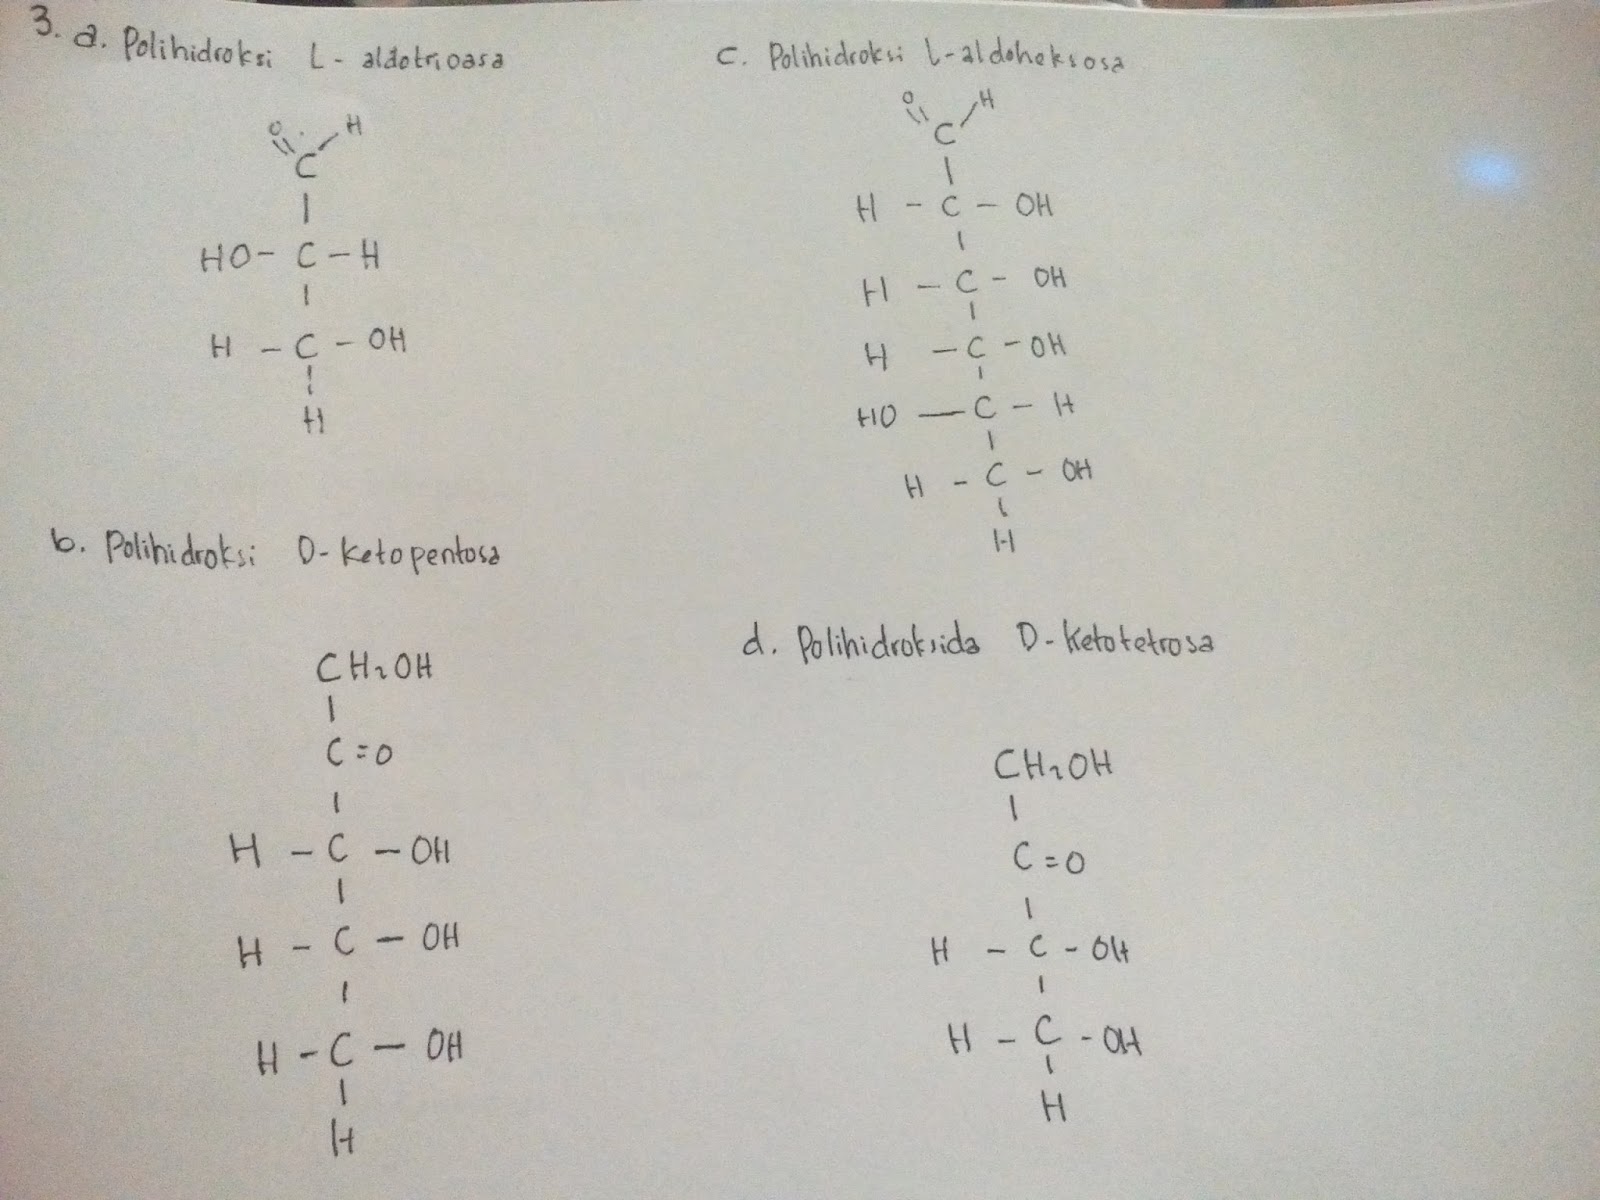 3. a. Polihidroksi L - aldotrioasa
O H
C
HO - C - H
H - C - OH
H
b. Polihidroksi D - Ketopentosa
CH2OH
C = O
H - C - OH
H - C - OH
H - C - OH
H
c. Polihidroksi L - aldoheksosa
O H
C
H - C - OH
H - C - OH
H - C - OH
HO - C - H
H - C - OH
H
d. Polihidroksida D - Ketotetrosa
CH2OH
C = O
H - C - OH
H - C - OH
H